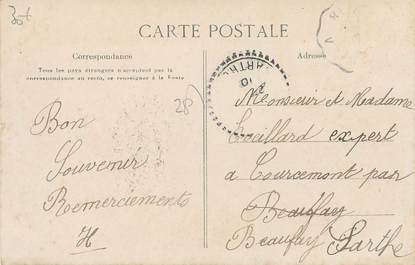 30+
CARTE POSTALE
Correspondance
Tous les pays étrangers n'acceptent pas la
correspondance au recto, se renseigner à la Poste
28
Bon
Souvenir
Remerciements
H
Adresse
SARTHE
Monsieur et Madame
expert
à Courcemont par
Beaufay
Beaufay Sarthe